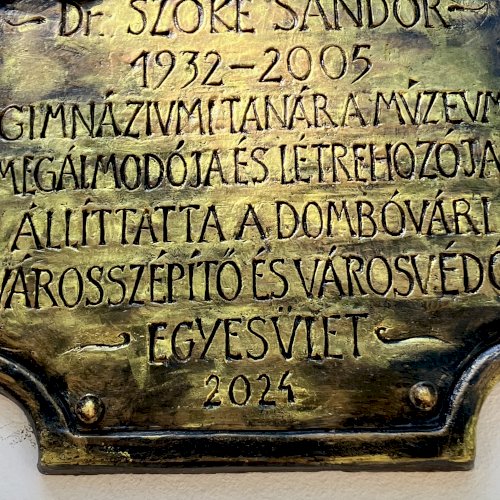 ~ Dr. SZŐKE SÁNDOR ~
1932–2005
GIMNÁZIUMI TANÁR A MÚZEUM
MEGÁLMODÓJA ÉS LÉTREHOZÓJA
ÁLLÍTTATTA A DOMBÓVÁRI
VÁROSSZÉPÍTŐ ÉS VÁROSVÉDŐ
~ EGYESÜLET ~
2024